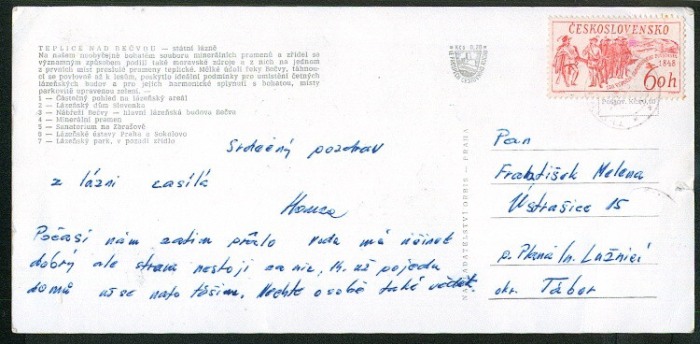 TEPLICE NAD BEČVOU — státní lázně
Na našem neobyčejně bohatém souboru minerálních pramenů a zřídel se
významným způsobem podílí také moravské zdroje a z nich na jednom
z prvních míst proslulé prameny teplické. Mělké údolí řeky Bečvy,
ci se povlovně až k lesům, poskytlo ideální podmínky pro umístění četných
lázeňských budov a pro jejich harmonické splynutí s bohatou, místy
parkovitě upravenou zelení.
1 — Částečný pohled na lázeňský areál
2 — Lázeňský dům Slovenka
3 — Nábřeží Bečvy — hlavní lázeňská budova Bečva
4 — Minerální pramen
5 — Sanatorium na Zbrašově
6 — Lázeňské ústavy Praha a Sokolovo
7 — Lázeňský park, v pozadí zřídlo
Srdečný pozdrav
z lázní zasílá
Honza
Počasí nám zatím přálo voda má účinek
dobrý ale strava nestojí za nic, 14. už pojedu
domů už se na to těším. Nechte o sobě také vědět.
NAKLADATELSTVÍ ORBIS — PRAHA
ČESKOSLOVENSKO
1848
60h
Poštov. Kčs 0,60
Pan
František Melena
Ústrašice 15
p. Planá n. Lužnicí
okr. Tábor